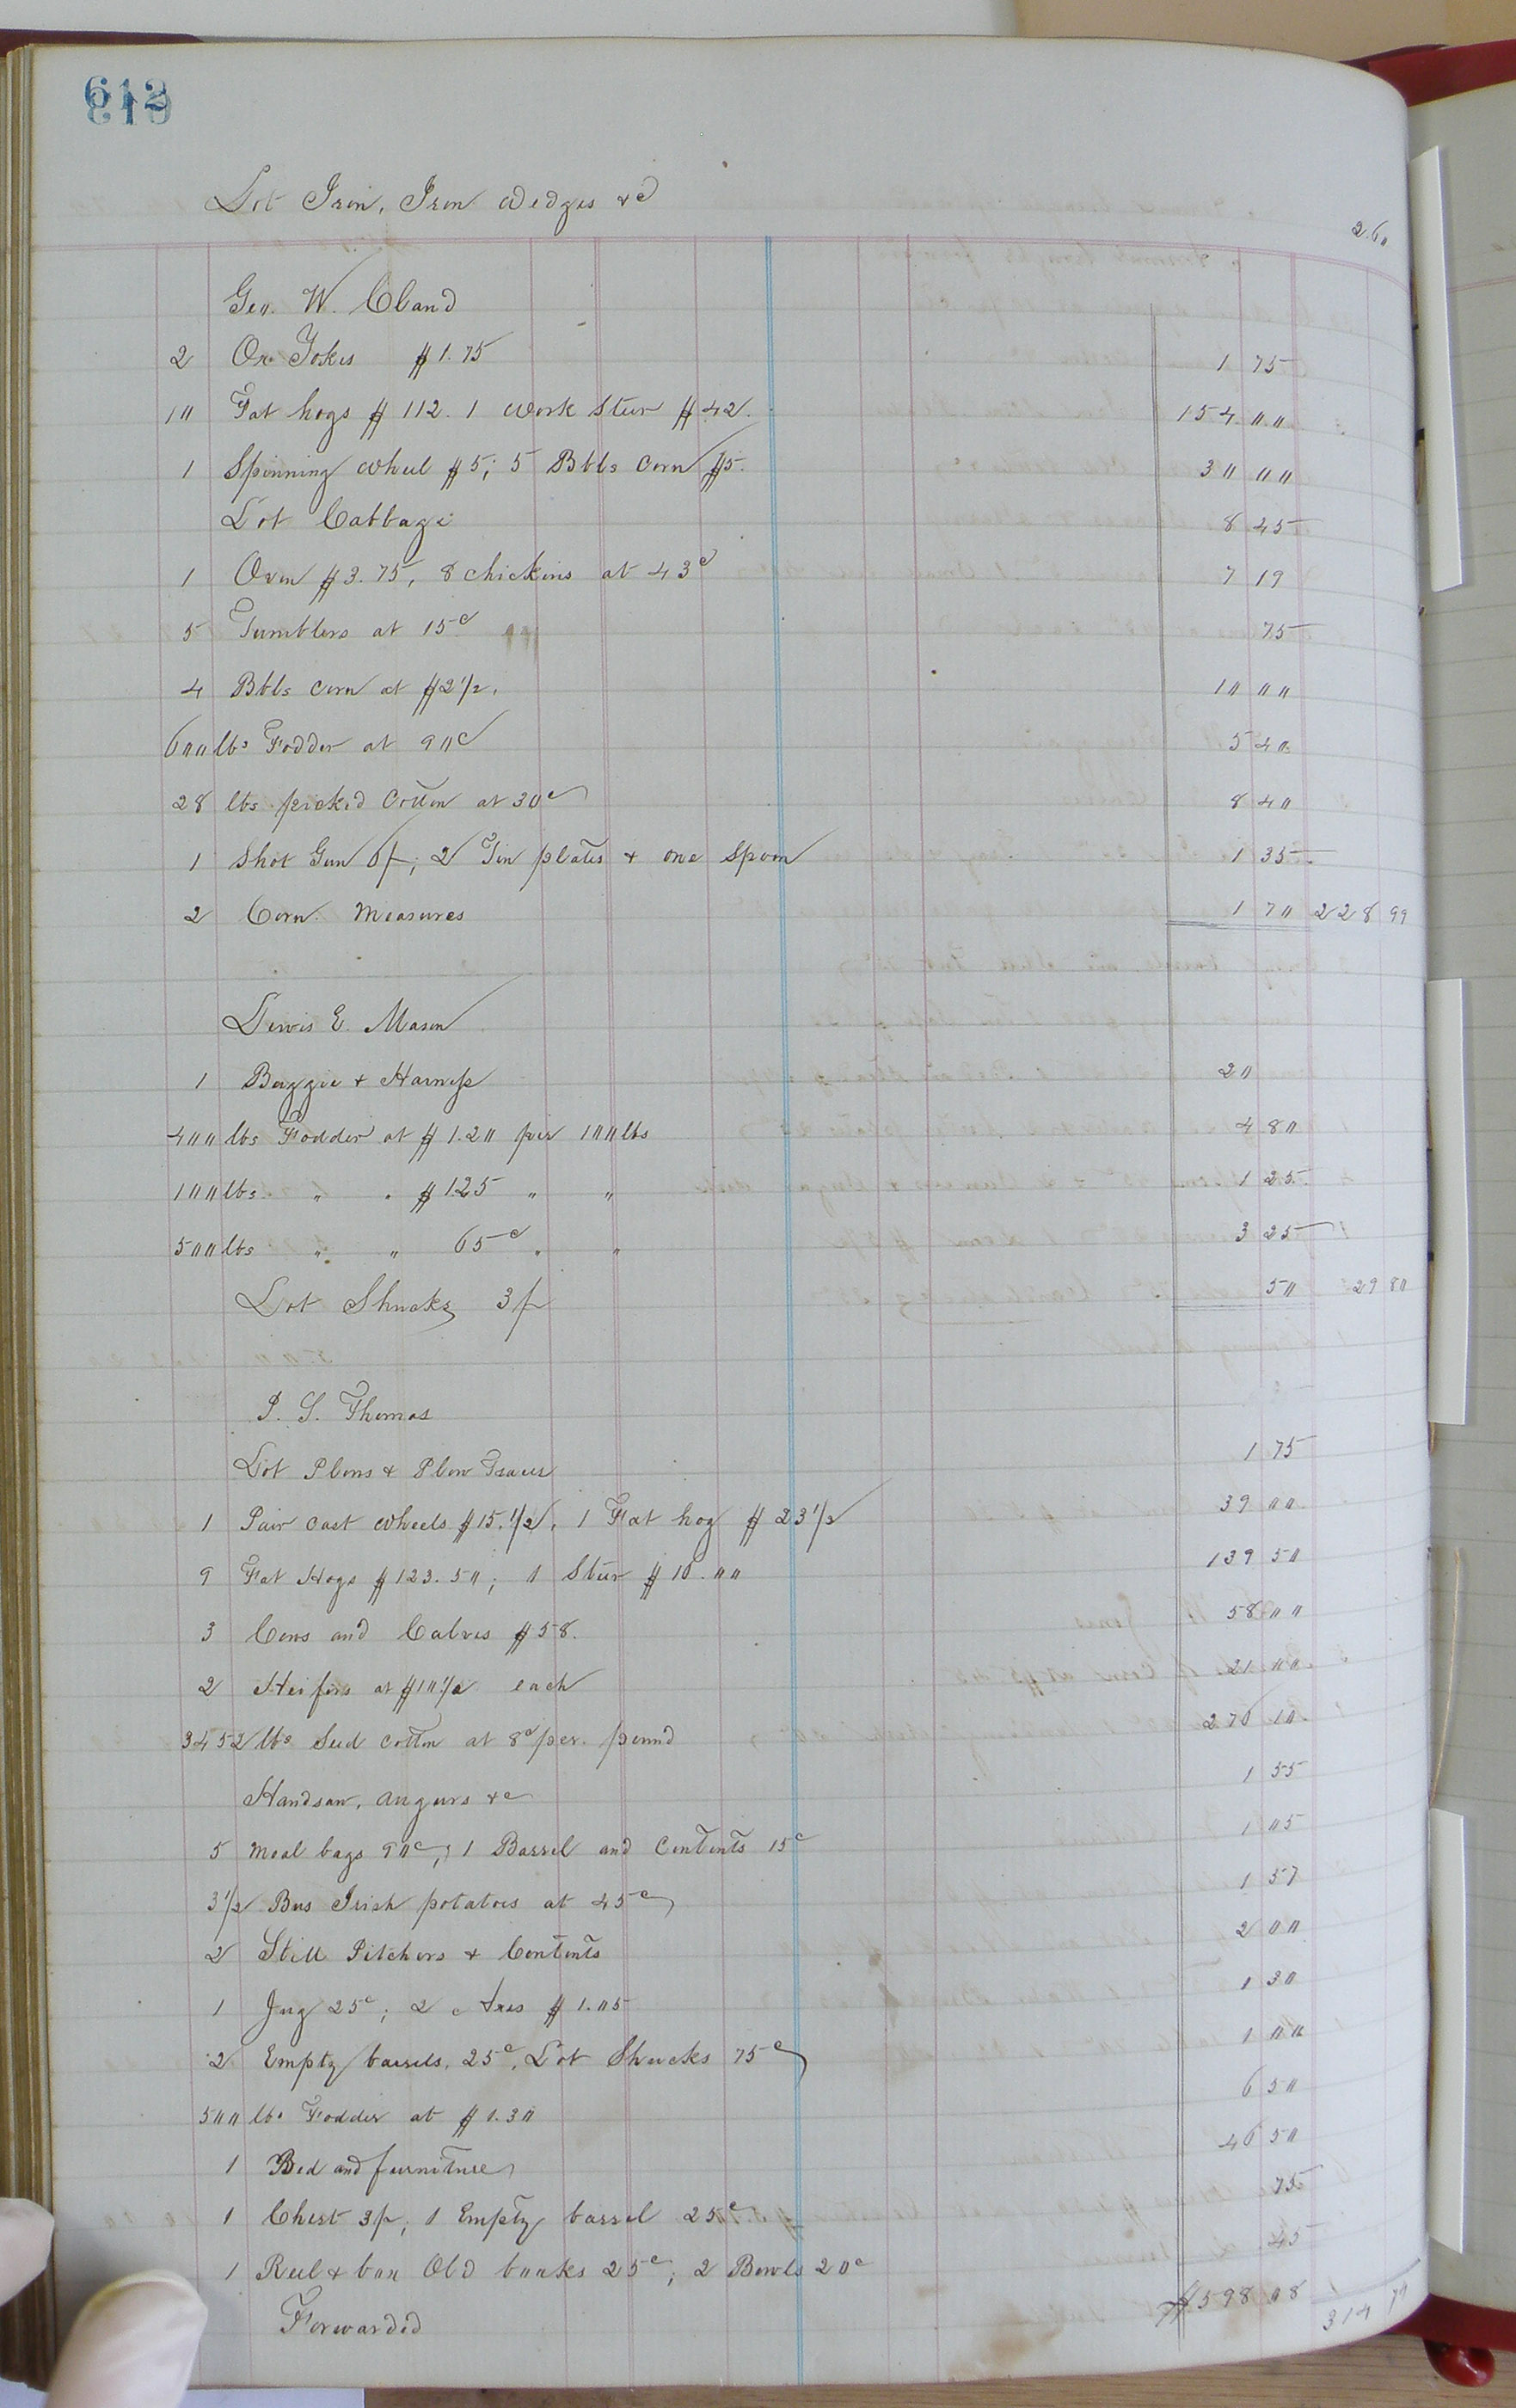 612
Lot Iron, Iron Wedges &c 2.60
Geo. W. Eland
2 Ox Yokes $1.75 1 75
10 Fat hogs $112. 1 work Steer $42. 154 00
1 Spinning Wheel $5; 5 Bbls Corn $5. 30 00
Lot Cabbage 8 45
1 Oven $3.75, 8 chickens at 43c 7 19
5 Tumblers at 15c 75
4 Bbls corn at $2 1/2. 10 00
600 lbs Fodder at 90c 5 40
28 lbs picked Cotton at 30c 8 40
1 Shot Gun 6/-; 2 Tin plates & one Spoon 1 35
2 Corn Measures 1 70 228 99
Lewis E. Mason
1 Buggie & Harness 20
400 lbs Fodder at $1.20 per 100 lbs 4 80
100 lbs " " $1.25 " " 1 25
500 lbs " " 65c " " 3 25
Lot Shucks 3/- 50 29 80
P. S. Thomas
Lot Plows & Plow Traces 1 75
1 Pair cart wheels $15.1/2, 1 Fat hog $23 1/2 39 00
9 Fat Hogs $123.50; 1 Steer $16.00 139 50
3 Cows and Calves $58. 58 00
2 Heifers at $10 1/2 each 21 00
3452 lbs Seed cotton at 8c per. pound 276 10
Handsaw, augurs &c 1 55
5 Meal bags 90c, 1 Barrel and Contents 15c 1 05
3 1/2 Bus Irish potatoes at 45c 1 57
2 Still Pitchers & Contents 2 00
1 Jug 25c; 2 Axes $1.05 1 30
2 Empty barrels, 25c, Lot Shucks 75c 1 00
500 lbs Fodder at $1.30 6 50
1 Bed and furniture 46 50
1 Chest 3/-; 1 Empty barrel 25c 75
1 Reel & box Old books 25c; 2 Bowls 20c 45
Forwarded $598 08 314 79